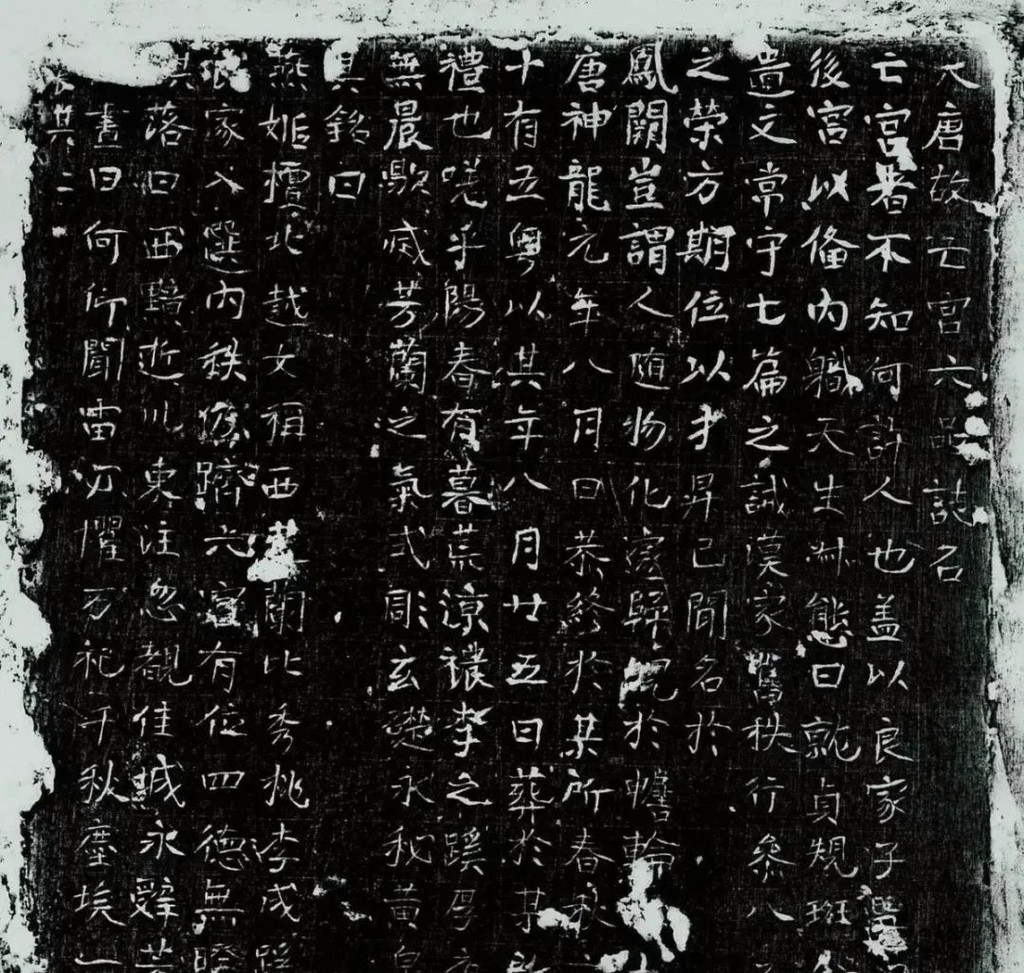 大唐故亡宮六品誌名
亡宮者不知何許人也盖以良家子選
後宮以俻内職天生淋態日就貞規班
遺文常守七篇之誡漢家舊秩行叅八
之榮方期位以才昇已聞名於
鳳闕豈謂人隨物化邊歸魄於蟾輪
唐神龍元年八月日恭終於某所春秋
十有五粤以其年八月廿五日葬於某所
禮也嗟乎陽春有暮蕪涼穠李之蹊厚
無晨歇滅芳蘭之氣式彫玄礎永秘黄泉
其銘曰
燕姬檀北越女稱西蘭比秀桃李成蹊
良家入選内秩儕躋六宮有位四德無暌
其落日西黯逝川東注忽覩佳城永辭
晝日何所聞雷不懼万祀千秋塵埃一
其二